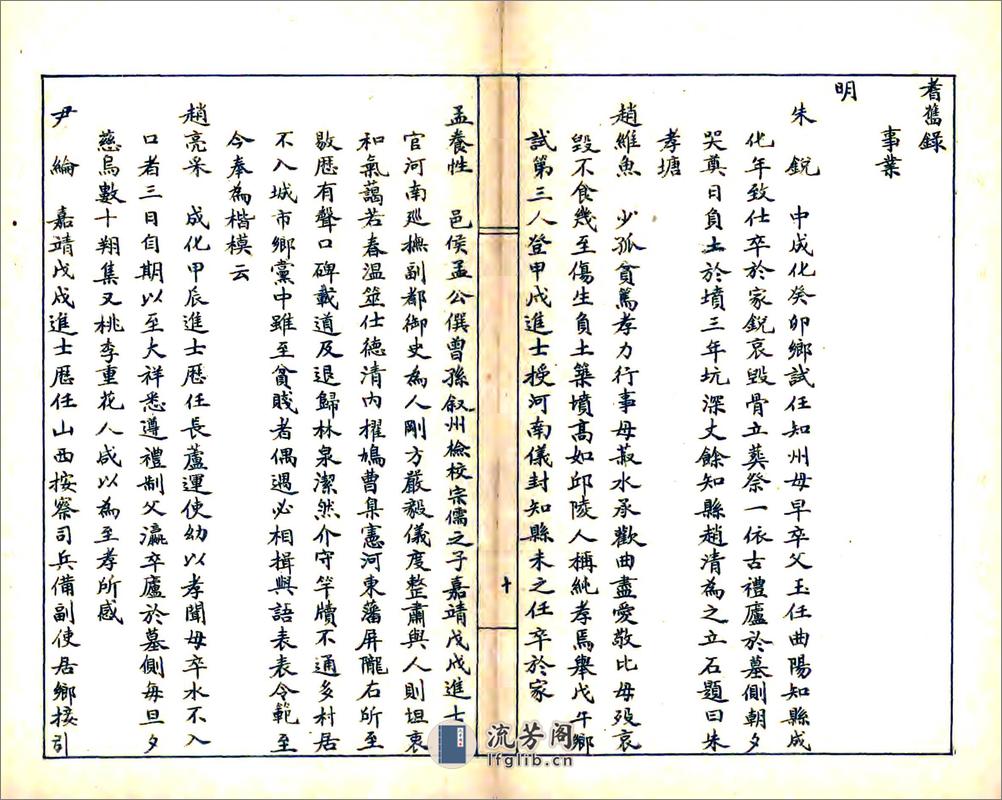 耆舊録
事業
明
朱　鋭　中成化癸卯鄉試任知州母早卒父玉任曲陽知縣成
化年致仕卒於家鋭哀毀骨立葬祭一依古禮廬於墓側朝夕
哭奠日負土於墳三年坑深丈餘知縣趙清為之立石題曰朱
孝塘
趙維魚　少孤貧篤孝力行事母菽水承歡曲盡愛敬比母歿哀
毀不食幾至傷生負土築墳高如邱陵人稱純孝焉舉戊午鄉
試第三人登甲戌進士授河南儀封知縣未之任卒於家
十
孟養性　邑侯孟公僎曾孫叙州檢校宗儒之子嘉靖戊戌進士
官河南廵撫副都御史為人剛方嚴毅儀度整肅與人則坦衷
和氣藹若春温筮仕德清内擢鳩曹臬憲河東藩屏隴右所至
敭歴有聲口碑載道及退歸林泉潔然介守竿牘不通多村居
不入城市鄉黨中雖至貧賤者偶遇必相揖與語表表令範至
今奉為楷模云
趙亮采　成化甲辰進士歴任長蘆運使幼以孝聞母卒水不入
口者三日自期以至大祥悉遵禮制父瀛卒廬於墓側每旦夕
慈烏數十翔集又桃李重花人咸以為至孝所感
尹　綸　嘉靖戊戌進士歴任山西按察司兵備副使居鄉接引
流芳阁
lfglib.cn